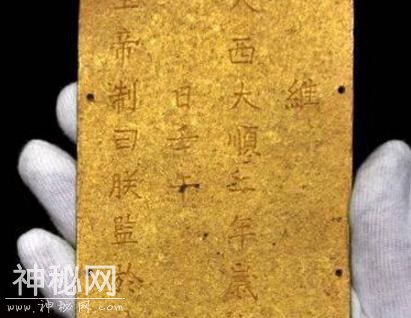 維
大西大順二年歲
日午
皇帝制曰朕監於
神秘网
WWW.神秘网.COM